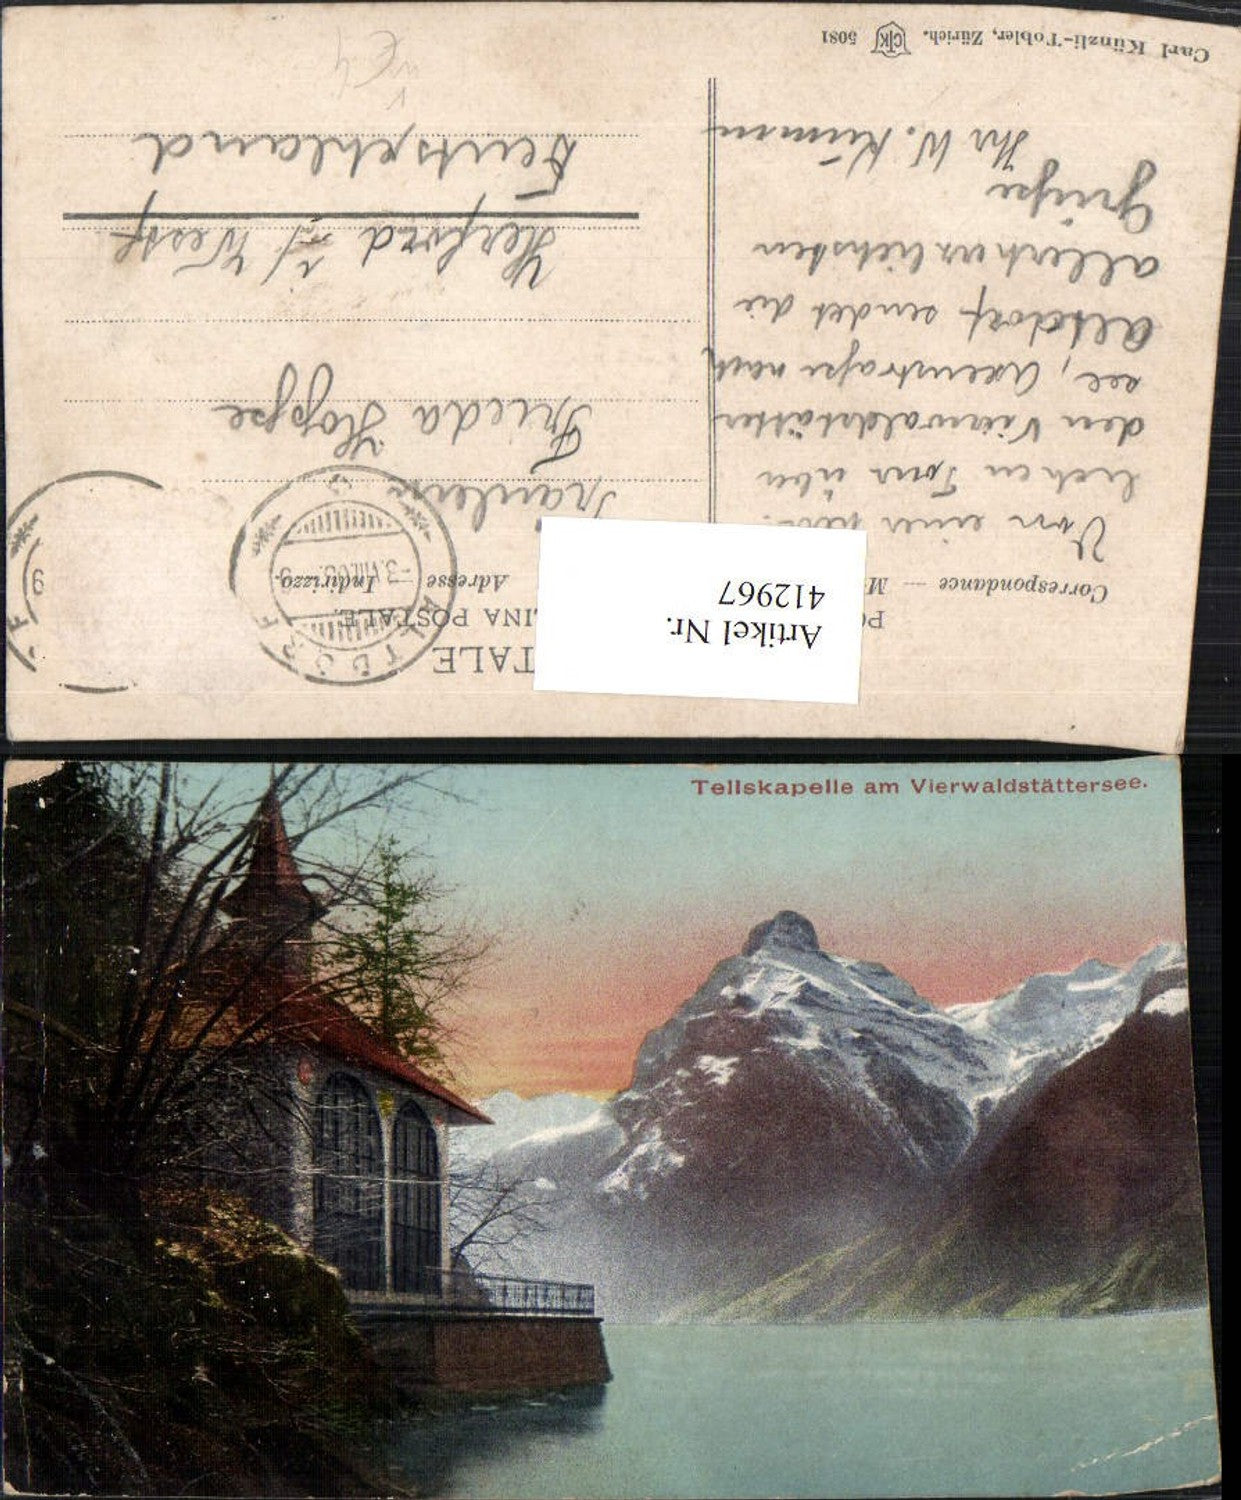 Carl Künzli-Tobler, Zürich. CTK 5081
TALE
LINA POSTALE.
Correspondance —
Adresse — Indirizzo.
Artikel Nr.
412967
ALTDORF
-3.VIII.09.-9
9
F
Von einer
lichen Tour über
den Vierwaldstätter
see, Axenstraße nach
Altdorf sendet die
allerherzlichsten
Grüße
Ihr W.
Fräulein
Frieda Hoppe
Herford i/ Westf
Deutschland
Tellskapelle am Vierwaldstättersee.